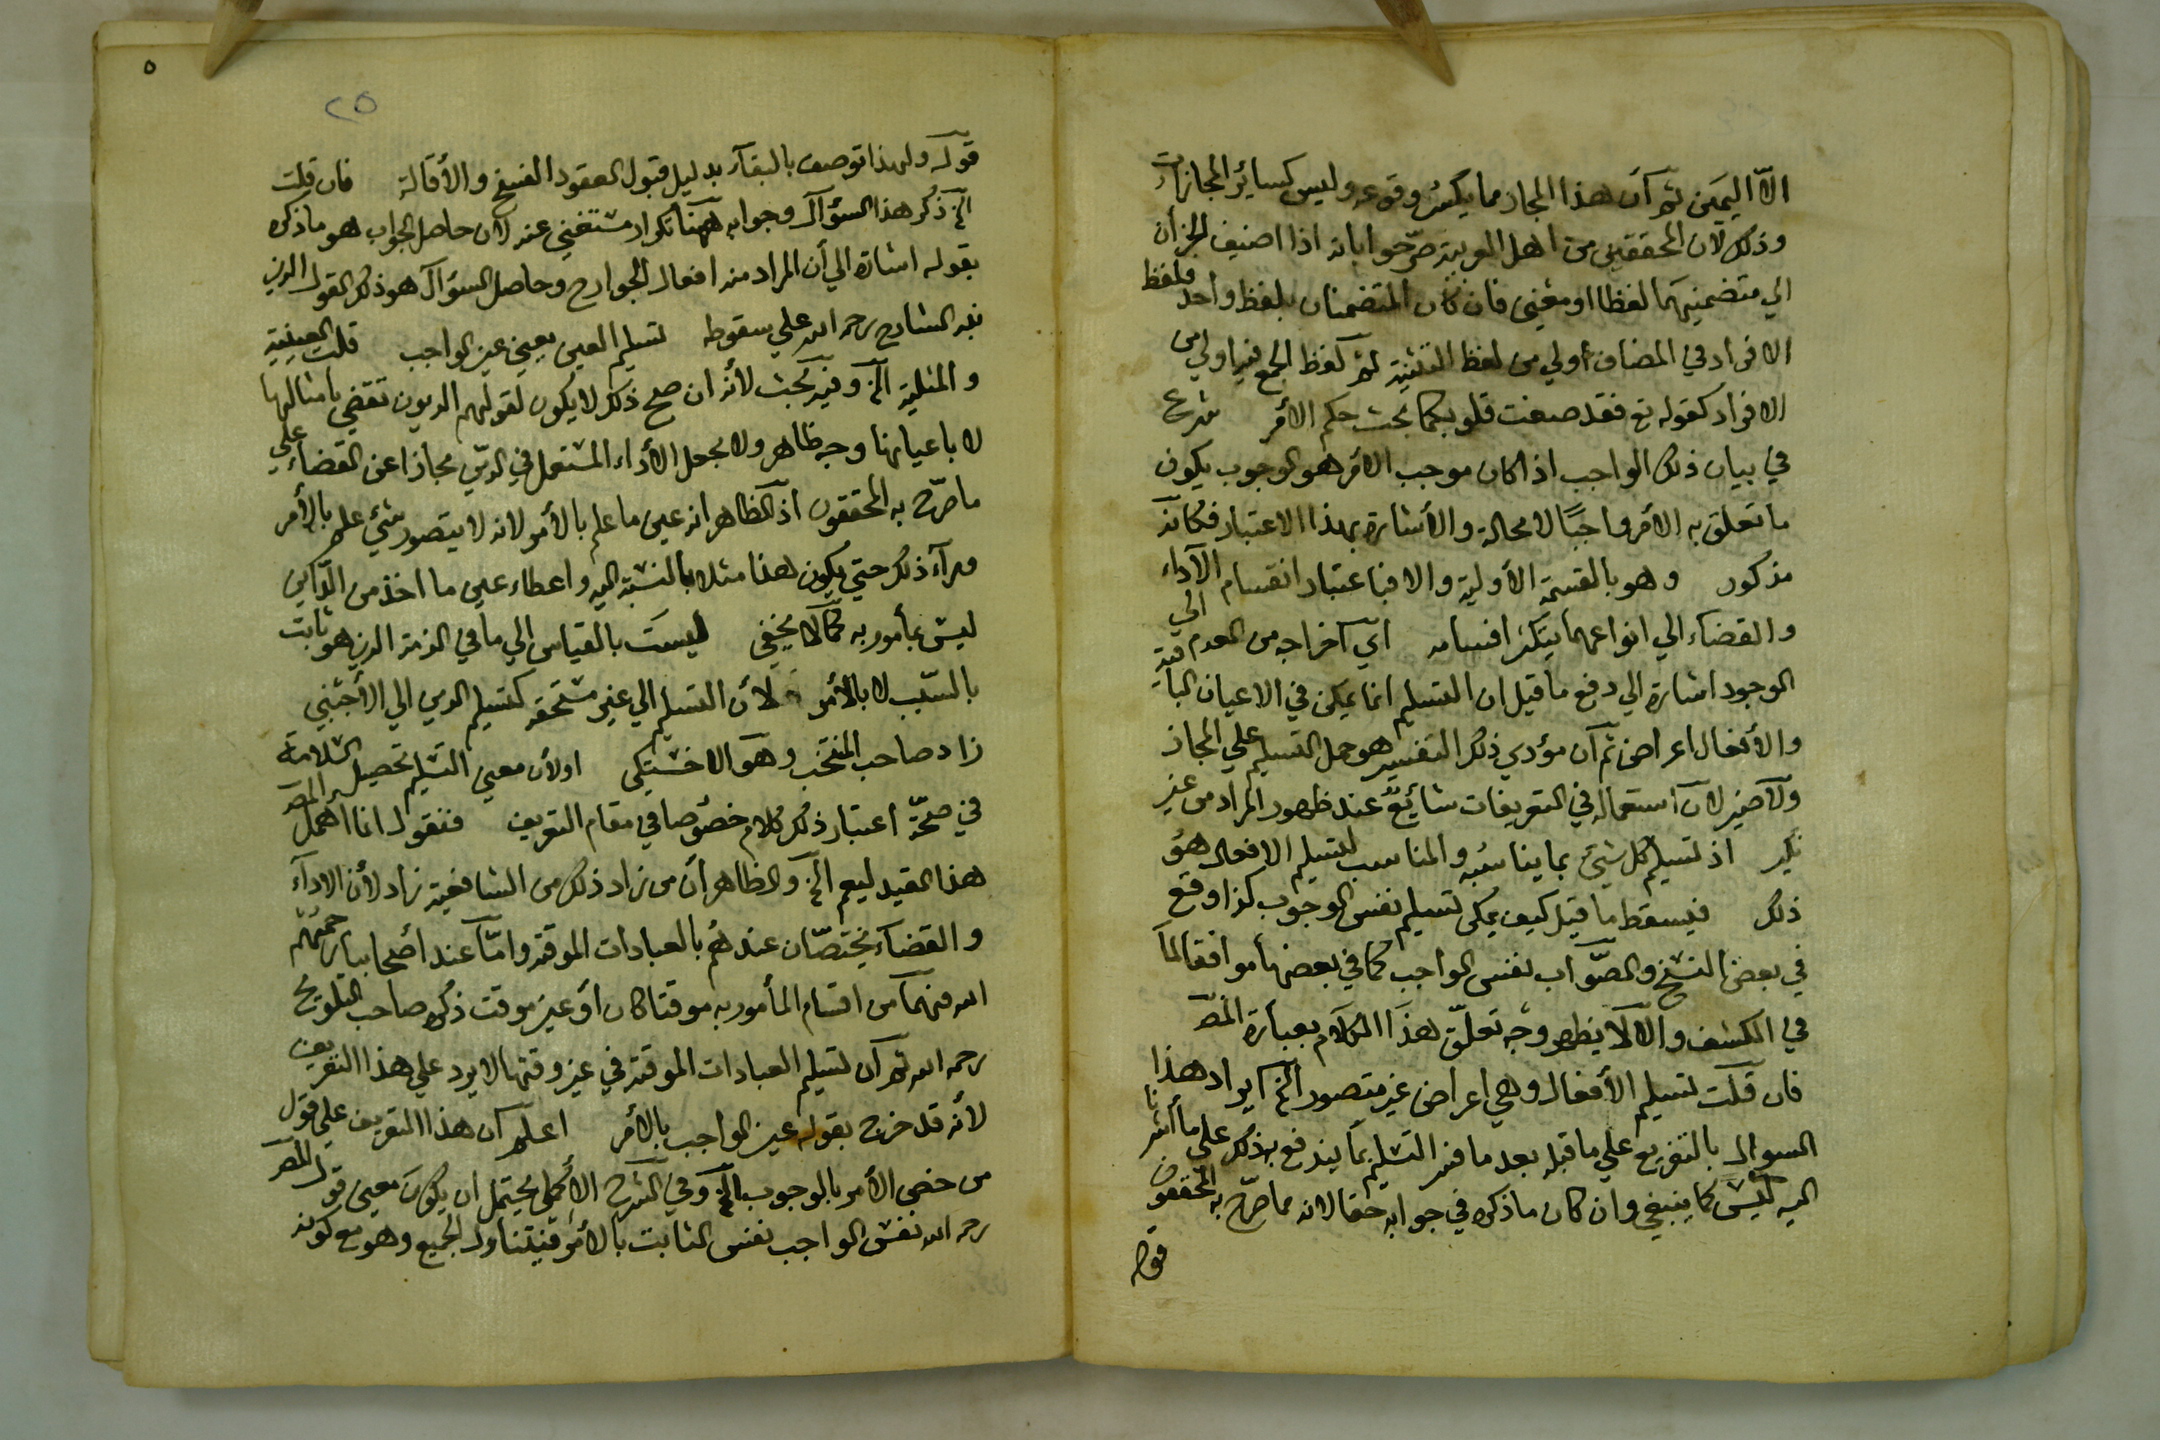 الا اليمين ثم ان هذا المجاز مما يكثر وقوعه وليس كساير المجازات
وذلك لان المحققين من اهل العربية صرّحوا بانه اذا اضيف الجزآن
الي متضمنيهما لفظا او معني فان كان المتضمنان بلفظ واحد فلفظ
الافراد في المضاف أولي من لفظ التثنية ثم لفظ الجمع فيه اولي من
الافراد كقوله تع فقد صغت قلوبكما بحث حكم الأمر شرع
في بيان ذلك الواجب اذا كان موجب الامر هو الوجوب يكون
ما تعلق به الأمر واجبًا لا محالة والأشارة بهذا الاعتبار فكانه
مذكور وهو بالقسمة الأولية والا فباعتبار انقسام الآداء
والقضاء الي انواعهما يتكثر اقسامه اي اخراجه من العدم الي
الوجود اشارة الي دفع ما قيل ان التسليم انما يمكن في الاعيان الباقية
والأفعال اعراض ثم آن مؤدي ذلك التفسير هو حمل التسليم علي المجاز
ولا ضير لان استعماله في التعريفات شائع عند ظهور المراد من غير
نكير اذ تسليم كل شيئ بما يناسبه والمناسب لتسليم الافعال هو
ذلك فيسقط ما قيل كيف يمكن تسليم نفس الوجوب كذا وقع
في بعض النسخ والصّواب نفس الواجب كما في بعضها موافقا لما
في الكشف والا لا يظهر وجه تعلّق هذا الكلام بعبارة المص
فان قلت تسليم الأفعال وهي اعراض غير متصور الخ ايراد هذا
السوال بالتفريع علي ما قبله بعد ما فسر التسليم بما يندفع بذلك علي ما أشرنا
اليه ليس كما ينبغي وان كان ما ذكره في جوابه حقا لانه مما صرّح به المحققون
قوله
٥
٢٥
قوله ولهذا توصف بالبقآء بدليل قبول العقود الفسخ والأقالة فان قلت
الخ ذكر هذا السؤال وجوابه ههنا تكرار مستغني عنه لان حاصل الجواب هو ما ذكره
بقوله اشارة الي أن المراد منه افعال الجوارح وحاصل السؤال هو ذلك القول الذي
نبه الشارح رحمه الله علي سقوطه تسليم العين يعني عين الواجب قلت العينية
والمثلية الخ وفيه بحث لأنه ان صح ذلك لا يكون لقولهم الديون تقضي بامثالها
لا باعيانها وجه ظاهر ولا يجعل الأداء المستعمل في الدين مجازا عن القضاء علي
ما صرّح به المحققون اذ الظاهر انه عين ما علم بالأمر لانه لا يتصور شيئ علم بالأمر
ورآء ذلك حتي يكون هذا مثله بالنسبة اليه واعطاء عين ما اخذ من الدّاين
ليس بمأمور به كما لا يخفي ليست بالقياس إلي ما في الذمة الذي هو ثابت
بالسّبب لا بالأمر لأن التسليم الي غير مستحقه كتسليم الدين الي الأجنبي
زاد صاحب المنتخب وهو الاخسيكي اولان معني التسليم تحصيل السّلامة
في صحّة اعتبار ذلك كلام خصوصا في مقام التعريف فنقول انما اهمل المص
هذا القيد ليعم الخ والظاهر أن من زاد ذلك من الشافعية زاد لأن الاداء
والقضآء يختصّان عندهم بالعبادات الموقتة وامّا عند أصحابنا رحمهم
الله فهما من اقسام المأمور به موقتا كان أو غير موقت ذكره صاحب التلويح
رحمه الله ثم ان تسليم العبادات الموقتة في غير وقتها لا يرد علي هذا التعريف
لأنه قد خرج بقوله عين الواجب بالأمر اعلم ان هذا التعريف علي قول
من خص الأمر بالوجوب الخ وفي الشرح الأكملي يحتمل ان يكون معني قول المص
رحمه الله نفس الواجب نفس الثابت بالأمر فيتناول الجميع وهو مع كونه